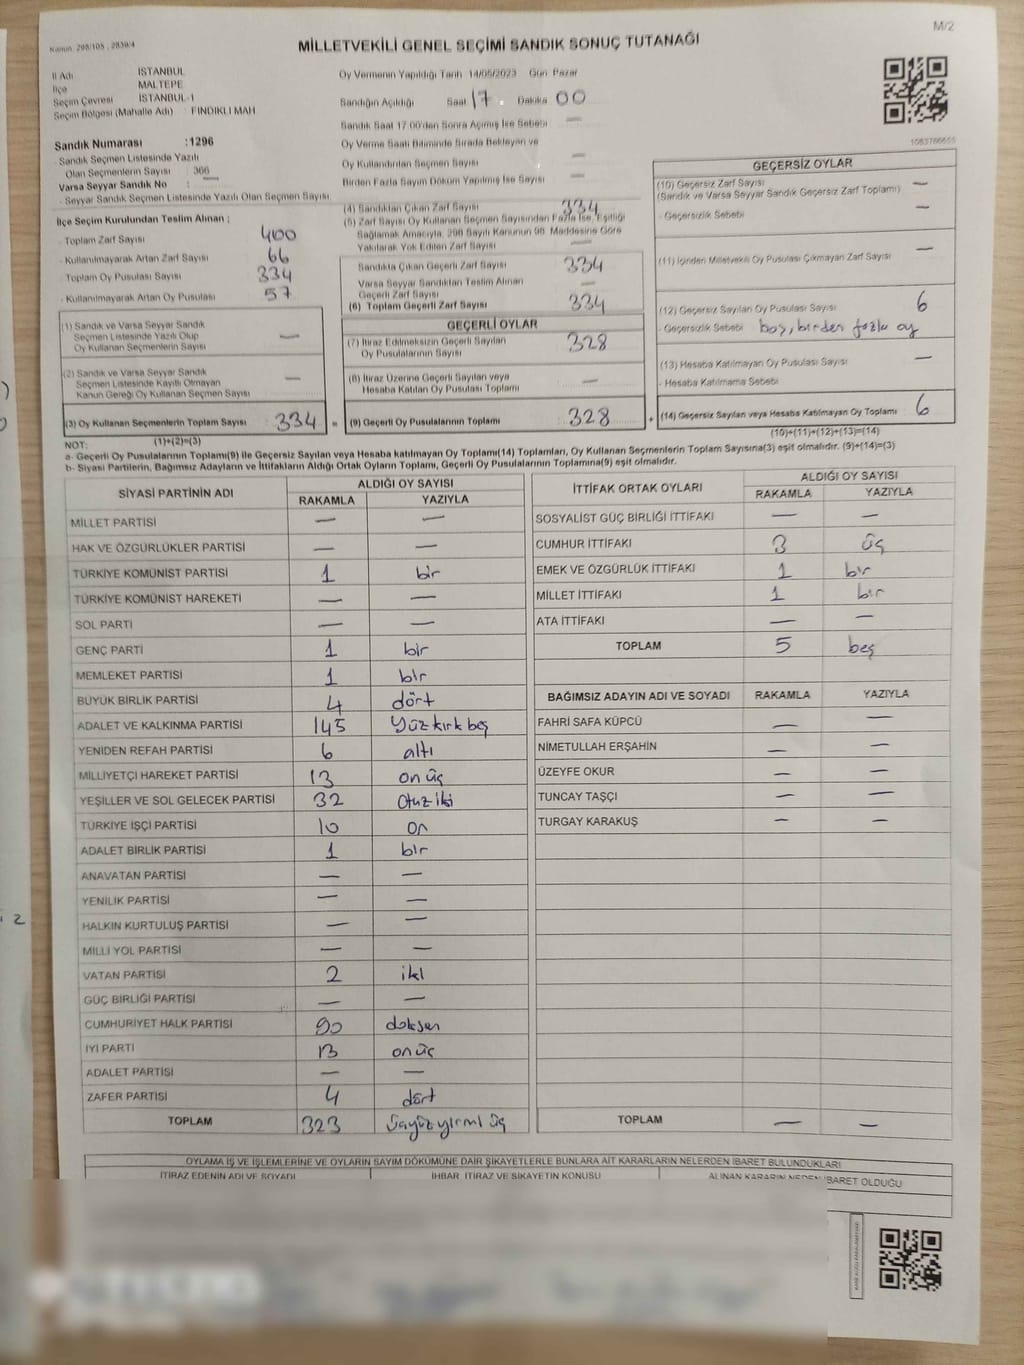 M/2
Kanun. 298/105 , 2839/4
MİLLETVEKİLİ GENEL SEÇİMİ SANDIK SONUÇ TUTANAĞI
İl Adı İSTANBUL
İlçe MALTEPE
Seçim Çevresi İSTANBUL-1
Seçim Bölgesi (Mahalle Adı) : FINDIKLI MAH
Oy Vermenin Yapıldığı Tarih 14/05/2023 Gün Pazar
Sandığın Açıldığı Saat 17 . Dakika 00
Sandık Saat 17.00'den Sonra Açılmış İse Sebebi —
Oy Verme Saati Bitiminde Sırada Bekleyen ve
Oy Kullandırılan Seçmen Sayısı —
Birden Fazla Sayım Döküm Yapılmış İse Sayısı —
Sandık Numarası :1296
- Sandık Seçmen Listesinde Yazılı
Olan Seçmenlerin Sayısı : 366
Varsa Seyyar Sandık No : —
- Seyyar Sandık Seçmen Listesinde Yazılı Olan Seçmen Sayısı
İlçe Seçim Kurulundan Teslim Alınan ;
- Toplam Zarf Sayısı 400
- Kullanılmayarak Artan Zarf Sayısı 66
- Toplam Oy Pusulası Sayısı 334
- Kullanılmayarak Artan Oy Pusulası 57
(1) Sandık ve Varsa Seyyar Sandık
Seçmen Listesinde Yazılı Olup
Oy Kullanan Seçmenlerin Sayısı —
(2) Sandık ve Varsa Seyyar Sandık
Seçmen Listesinde Kayıtlı Olmayan
Kanun Gereği Oy Kullanan Seçmen Sayısı —
(3) Oy Kullanan Seçmenlerin Toplam Sayısı : 334 =
(1)+(2)=(3)
(4) Sandıktan Çıkan Zarf Sayısı 334
(5) Zarf Sayısı Oy Kullanan Seçmen Sayısından Fazla İse, Eşitliği
Sağlamak Amacıyla, 298 Sayılı Kanunun 98. Maddesine Göre
Yakılarak Yok Edilen Zarf Sayısı —
Sandıkta Çıkan Geçerli Zarf Sayısı 334
Varsa Seyyar Sandıktan Teslim Alınan
Geçerli Zarf Sayısı —
(6) Toplam Geçerli Zarf Sayısı 334
GEÇERLİ OYLAR
(7) İtiraz Edilmeksizin Geçerli Sayılan
Oy Pusulalarının Sayısı 328
(8) İtiraz Üzerine Geçerli Sayılan veya
Hesaba Katılan Oy Pusulası Toplamı —
(9) Geçerli Oy Pusulalarının Toplamı 328 +
1083766655
GEÇERSİZ OYLAR
(10) Geçersiz Zarf Sayısı —
(Sandık ve Varsa Seyyar Sandık Geçersiz Zarf Toplamı)
- Geçersizlik Sebebi —
(11) İçinden Milletvekili Oy Pusulası Çıkmayan Zarf Sayısı —
(12) Geçersiz Sayılan Oy Pusulası Sayısı 6
- Geçersizlik Sebebi boş, birden fazla oy
(13) Hesaba Katılmayan Oy Pusulası Sayısı —
- Hesaba Katılmama Sebebi
(14) Geçersiz Sayılan veya Hesaba Katılmayan Oy Toplamı 6
(10)+(11)+(12)+(13)=(14)
NOT:
a- Geçerli Oy Pusulalarının Toplamı(9) ile Geçersiz Sayılan veya Hesaba katılmayan Oy Toplamı(14) Toplamları, Oy Kullanan Seçmenlerin Toplam Sayısına(3) eşit olmalıdır. (9)+(14)=(3)
b- Siyasi Partilerin, Bağımsız Adayların ve İttifakların Aldığı Ortak Oyların Toplamı, Geçerli Oy Pusulalarının Toplamına(9) eşit olmalıdır.
SİYASİ PARTİNİN ADI ALDIĞI OY SAYISI
RAKAMLA YAZIYLA
MİLLET PARTİSİ — —
HAK VE ÖZGÜRLÜKLER PARTİSİ — —
TÜRKİYE KOMÜNİST PARTİSİ 1 bir
TÜRKİYE KOMÜNİST HAREKETİ — —
SOL PARTİ — —
GENÇ PARTİ 1 bir
MEMLEKET PARTİSİ 1 bir
BÜYÜK BİRLİK PARTİSİ 4 dört
ADALET VE KALKINMA PARTİSİ 145 Yüz kırk beş
YENİDEN REFAH PARTİSİ 6 altı
MİLLİYETÇİ HAREKET PARTİSİ 13 on üç
YEŞİLLER VE SOL GELECEK PARTİSİ 32 Otuz iki
TÜRKİYE İŞÇİ PARTİSİ 10 on
ADALET BİRLİK PARTİSİ 1 bir
ANAVATAN PARTİSİ — —
YENİLİK PARTİSİ — —
HALKIN KURTULUŞ PARTİSİ — —
MİLLİ YOL PARTİSİ — —
VATAN PARTİSİ 2 iki
GÜÇ BİRLİĞİ PARTİSİ — —
CUMHURİYET HALK PARTİSİ 90 doksan
İYİ PARTİ 13 on üç
ADALET PARTİSİ — —
ZAFER PARTİSİ 4 dört
TOPLAM 323 üçyüz yirmi üç
İTTİFAK ORTAK OYLARI ALDIĞI OY SAYISI
RAKAMLA YAZIYLA
SOSYALİST GÜÇ BİRLİĞİ İTTİFAKI — —
CUMHUR İTTİFAKI 3 üç
EMEK VE ÖZGÜRLÜK İTTİFAKI 1 bir
MİLLET İTTİFAKI 1 bir
ATA İTTİFAKI — —
TOPLAM 5 beş
BAĞIMSIZ ADAYIN ADI VE SOYADI RAKAMLA YAZIYLA
FAHRİ SAFA KÜPCÜ — —
NİMETULLAH ERŞAHİN — —
ÜZEYFE OKUR — —
TUNCAY TAŞÇI — —
TURGAY KARAKUŞ — —
TOPLAM — —
OYLAMA İŞ VE İŞLEMLERİNE VE OYLARIN SAYIM DÖKÜMÜNE DAİR ŞİKAYETLERLE BUNLARA AİT KARARLARIN NELERDEN İBARET BULUNDUKLARI
İTİRAZ EDENİN ADI VE SOYADI İHBAR İTİRAZ VE ŞİKAYETİN KONUSU ALINAN KARARIN NEDEN İBARET OLDUĞU